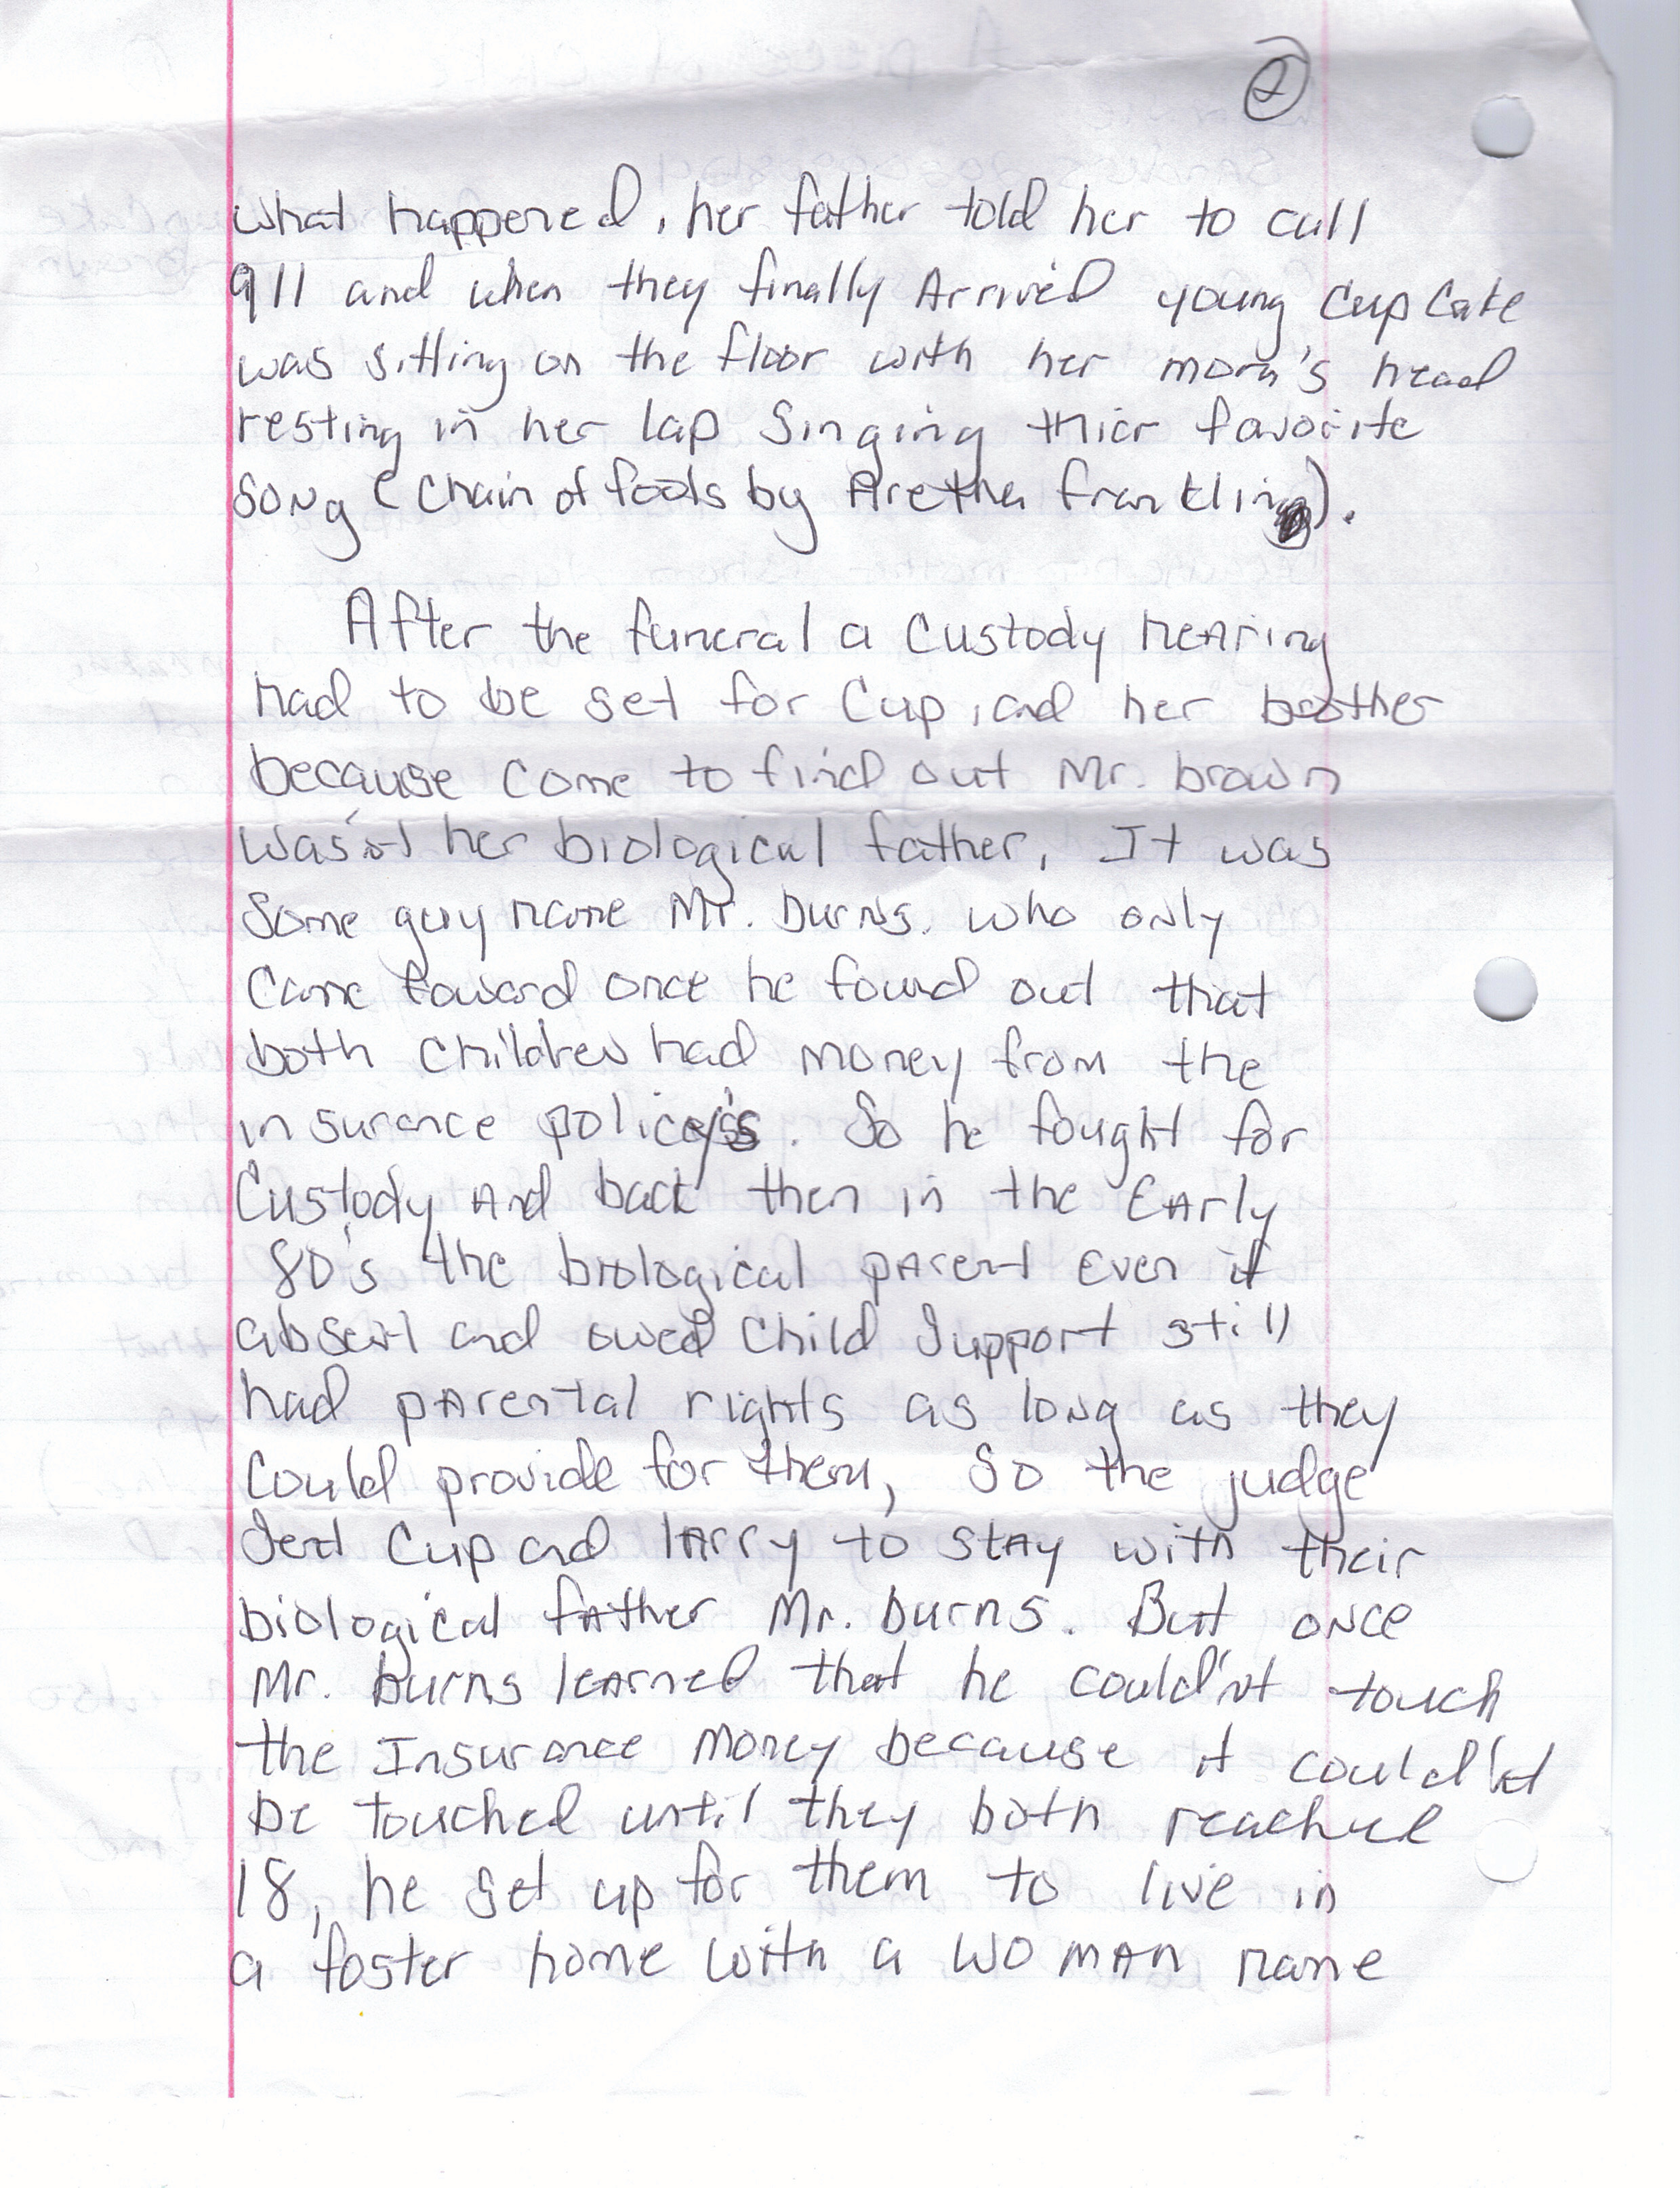 2
what happened, her father told her to call
911 and when they finally Arrived young CupCake
was sitting on the floor with her mom's head
resting in her lap Singing thier favorite
song (Chain of fools by Aretha franklin).
After the funeral a Custody hearing
had to be set for Cup, and her brother
because come to find out Mr. brown
was'nt her biological father, It was
some guy name Mr. burns. who only
came foward once he found out that
both children had money from the
insurance policy's. So he fought for
Custody And back then in the Early
80's the biological parent Even if
absent and owed child Support still
had parental rights as long as they
could provide for them, So the judge
sent Cup and larry to stay with their
biological father Mr. burns. But once
Mr. burns learned that he could'nt touch
the Insurance money because it could'nt
be touched until they both reached
18, he set up for them to live in
a foster home with a woman name